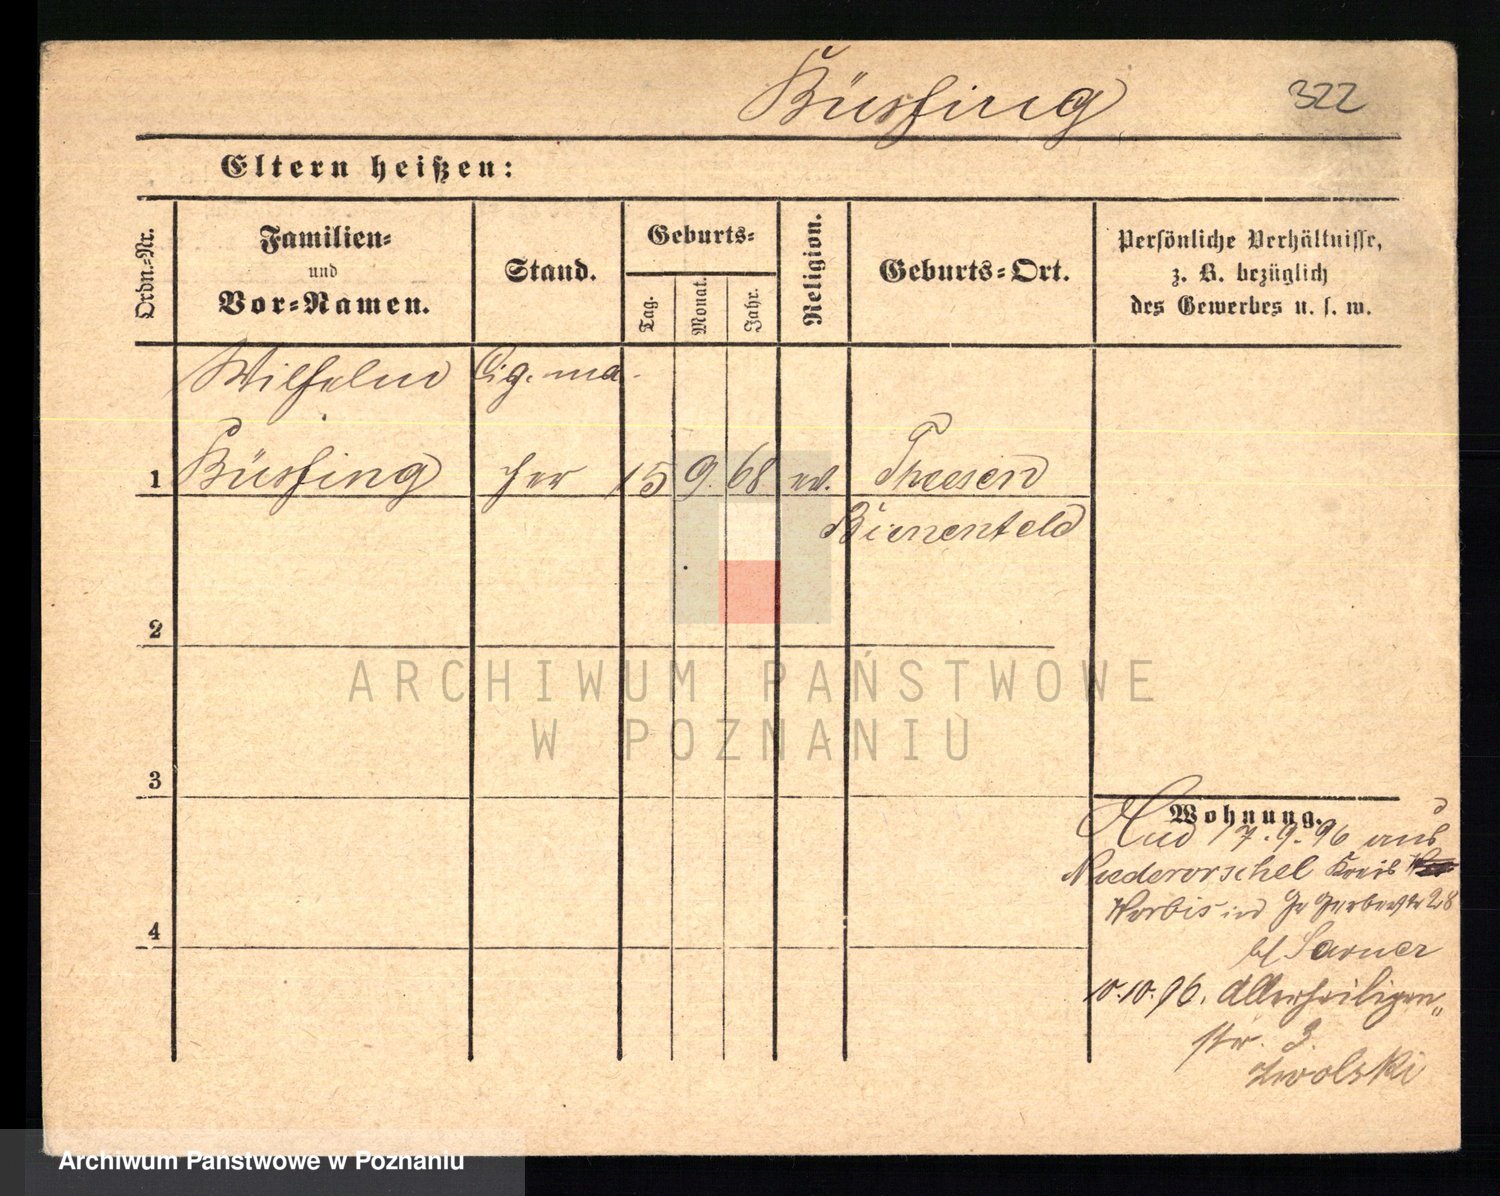 Büssing
322
Eltern heißen:
Ordn.-Nr.
Familien-
und
Vor-Namen.
Stand.
Geburts-
Tag.
Monat.
Jahr.
Religion.
Geburts-Ort.
Persönliche Verhältnisse,
z. B. bezüglich
des Gewerbes u. s. w.
Wilhelm Cig. ma-
1 Büssing cher 15 9. 68 ev. Theesen
Bienenfeld
2
3
4
Wohnung.
17.9.96 aus
Niederorschel Kreis
Worbis in Gr Gerberstr 28
b/ Sarner
10.10.96. Allerheiligen-
str. 3.
Zwolski
ARCHIWUM PAŃSTWOWE
W POZNANIU
Archiwum Państwowe w Poznaniu